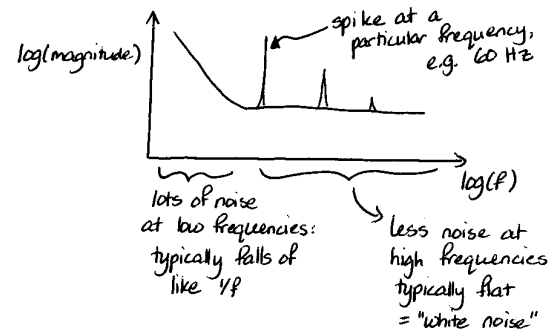 spike at a
particular frequency,
e.g. 60 Hz
log(magnitude)
log(f)
lots of noise
at low frequencies:
typically falls of
like 1/f
less noise at
high frequencies
typically flat
= "white noise"